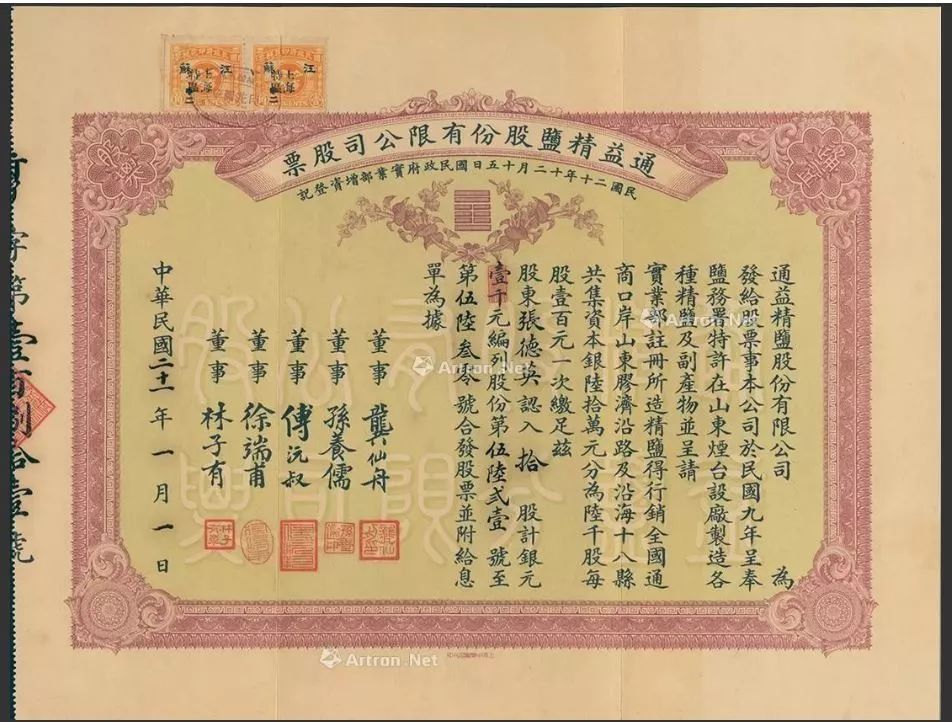 通益精鹽股份有限公司股票
民國二十年十二月十五日國民政府實業部增資登記
通益精鹽股份有限公司 為
發給股票事本公司於民國九年呈奉
鹽務署特許在山東煙台設廠製造各
種精鹽及副產物並呈請
實業部註冊所造精鹽得行銷全國通
商口岸山東膠濟沿路及沿海十八縣
共集資本銀陸拾萬元分為陸千股每
股壹百元一次繳足茲
股東張德英認入 拾 股計銀元
壹千元編列股份第伍陸弍壹號至
第伍陸叁零號合發股票並附給息
單為據
董事 龔仙舟
董事 孫養儒
董事 傅沅叔
董事 徐端甫
董事 林子有
中華民國二十一年一月一日
字第壹百捌拾壹號
江蘇
江蘇
Artron.Net
Artron.Net
Artron.Net